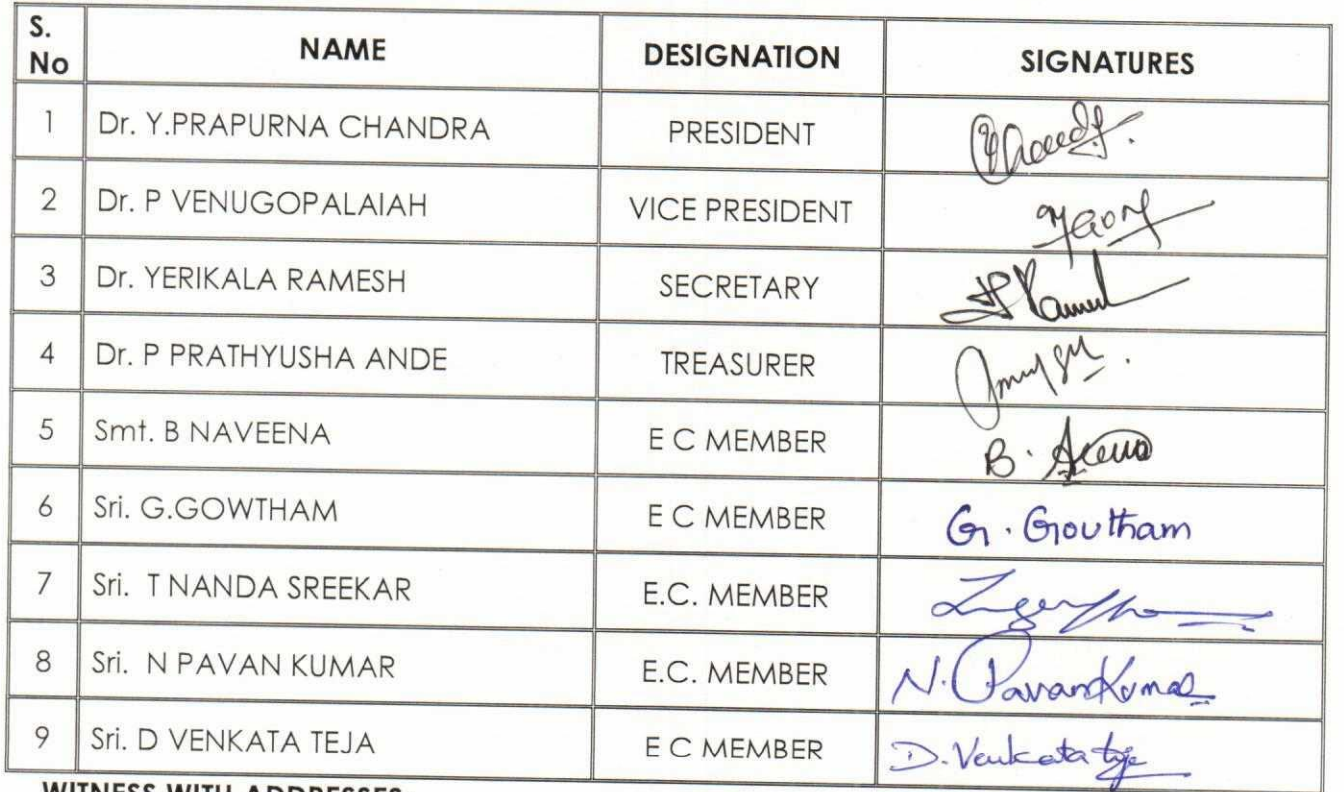 S. No NAME DESIGNATION SIGNATURES
1 Dr. Y.PRAPURNA CHANDRA PRESIDENT
2 Dr. P VENUGOPALAIAH VICE PRESIDENT
3 Dr. YERIKALA RAMESH SECRETARY
4 Dr. P PRATHYUSHA ANDE TREASURER
5 Smt. B NAVEENA E C MEMBER B.
6 Sri. G.GOWTHAM E C MEMBER G. Goutham
7 Sri. T NANDA SREEKAR E.C. MEMBER
8 Sri. N PAVAN KUMAR E.C. MEMBER N. PavanKumar
9 Sri. D VENKATA TEJA E C MEMBER D. Venkata teja
WITNESS WITH ADDRESSES